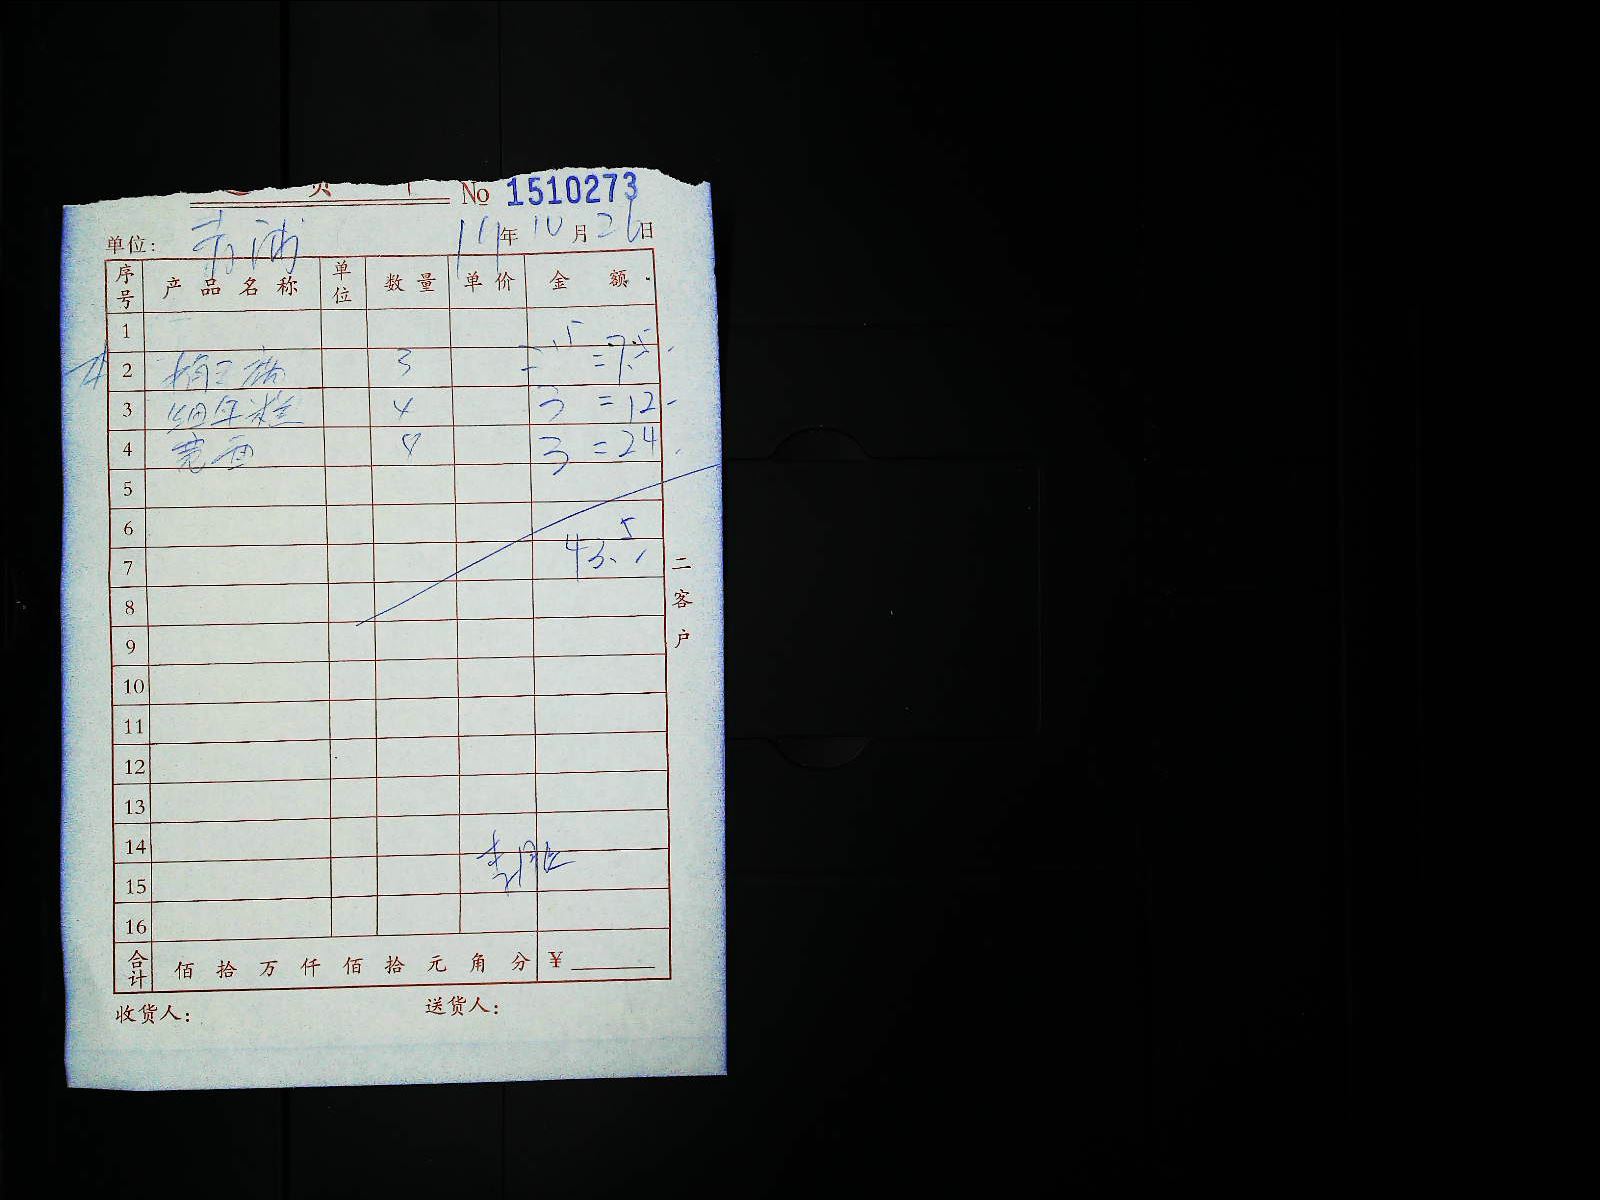 No 1510273
单位: 青浦 年 10 月 26 日
序号 产品名称 单位 数量 单价 金额
1
2 3 2.5 =7.5
3 细年糕 4 3 =12
4 宽面 8 3 =24
5
6
7 43.5
8
9
10
11
12
13
14
15
16
合计 佰 拾 万 仟 佰 拾 元 角 分 ¥
收货人: 送货人:
二客户